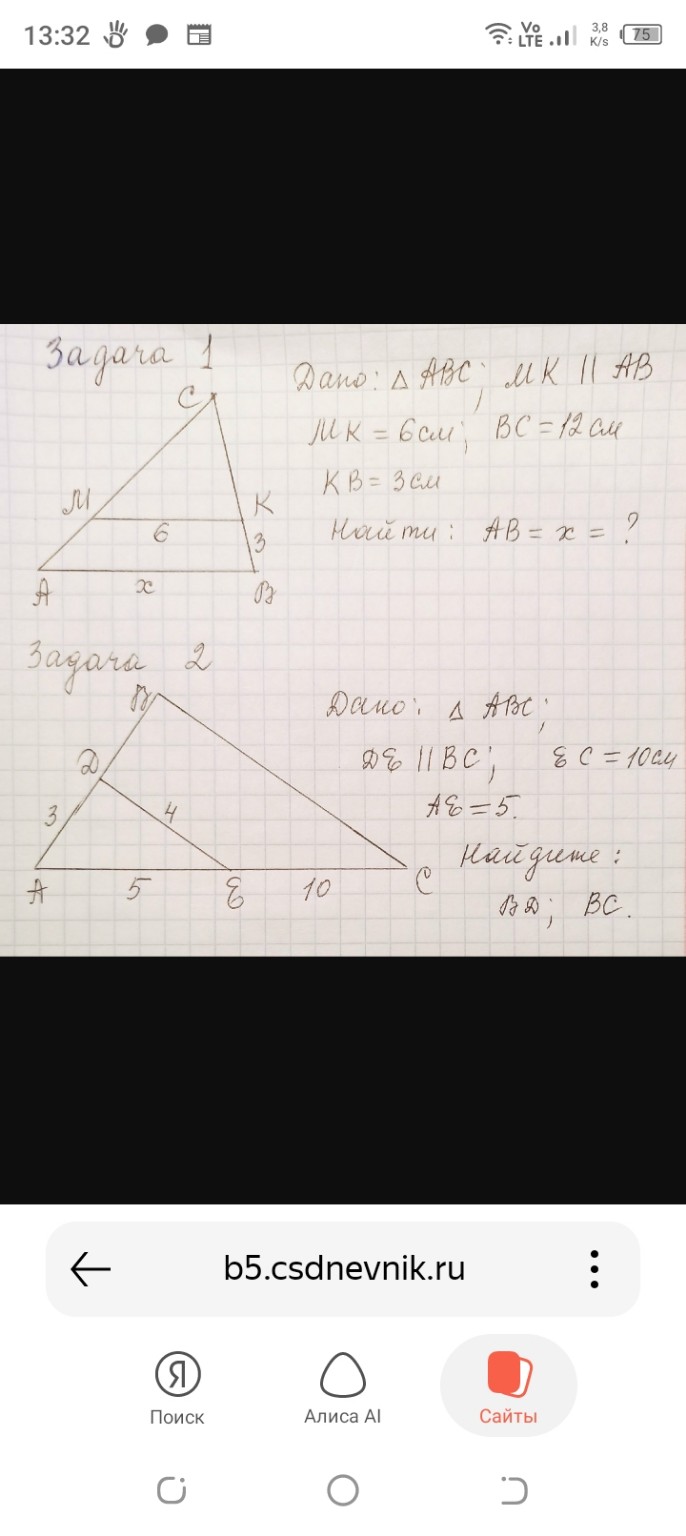 13:32 Vo LTE 3,8 K/s 75
Задача 1
Дано: △ ABC; MK || AB
MK = 6см; BC = 12 см
KB = 3 см
Найти: AB = x = ?
C
M
K
6
3
A
x
B
Задача 2
Дано: △ ABC;
DE || BC; EC = 10см
AE = 5.
Найдите:
BD; BC.
B
D
3
4
A
5
E
10
C
b5.csdnevnik.ru
Я
Поиск
Алиса AI
Сайты